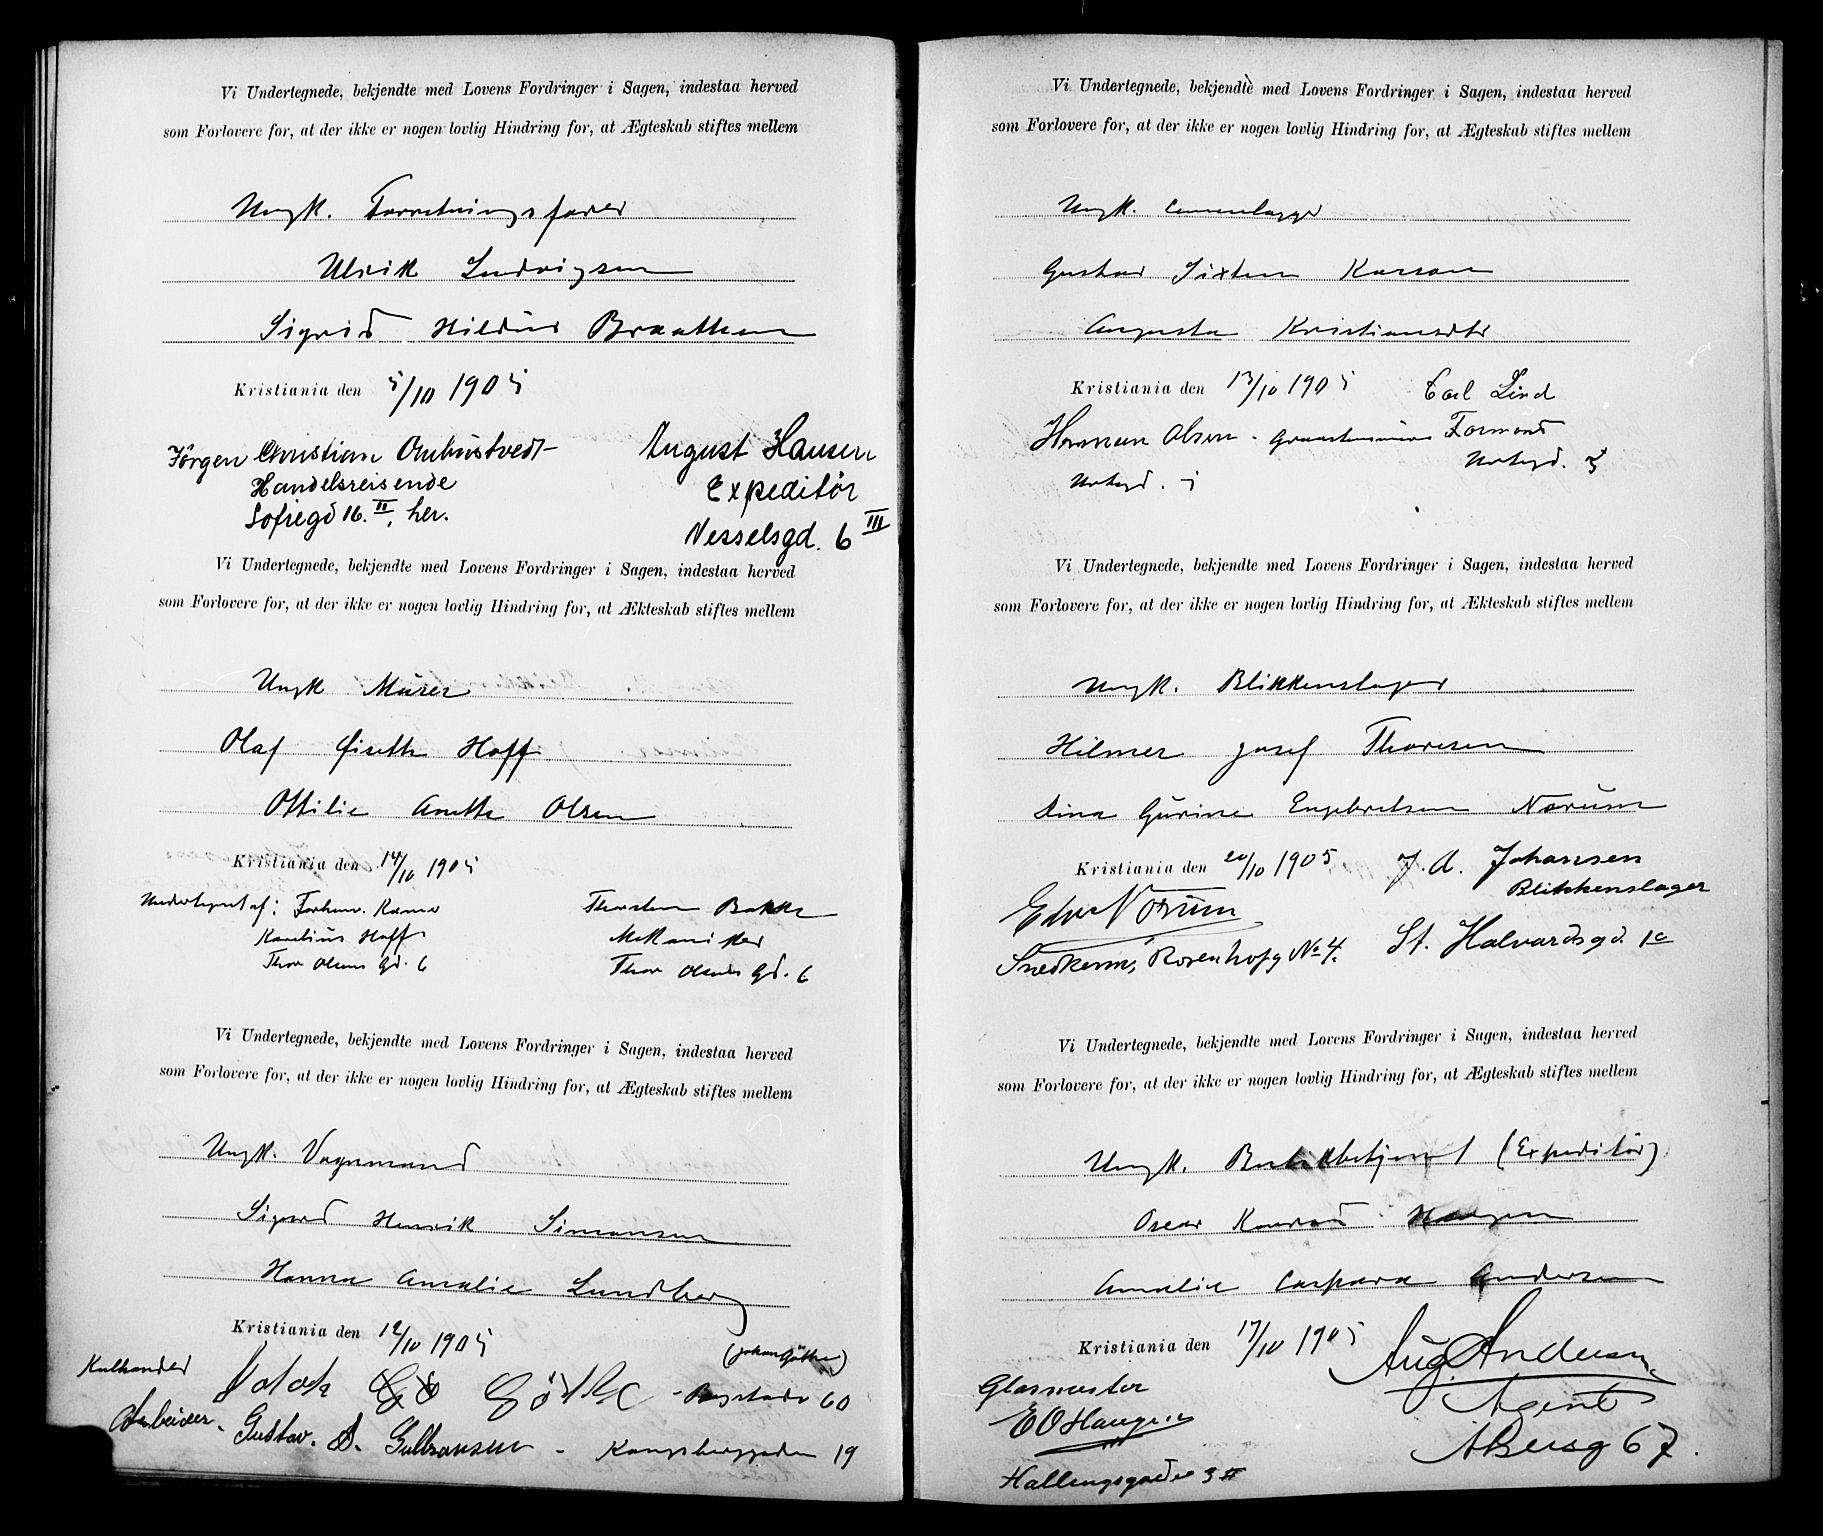 Vi Undertegnede, bekjendte med Lovens Fordringer i Sagen, indestaa herved
som Forlovere for, at der ikke er nogen lovlig Hindring for, at Ægteskab stiftes mellem
Ungk. Forretningsfører
Ulrik Ludvigsen
Sigrid Hildur Braathen
Kristiania den 5/10 1905
Jörgen Christian Ombustvedt
Handelsreisende
Sofiegd 16. II, her.
August Hansen
Expeditör
Wesselsgd. 6 III
Vi Undertegnede, bekjendte med Lovens Fordringer i Sagen, indestaa herved
som Forlovere for, at der ikke er nogen lovlig Hindring for, at Ækteskab stiftes mellem
Ungk Murer
Olaf Hoff
Ottilie Anette Olsen
Kristiania den 14/10 1905
Undertegnet af:
Karelius Hoff
Thor Olsens Gd. 6
Thorsten Bakke
Mekaniker
Thor Olsens Gd. 6
Vi Undertegnede, bekjendte med Lovens Fordringer i Sagen, indestaa herved
som Forlovere for, at der ikke er nogen lovlig Hindring for, at Ægteskab stiftes mellem
Ungk. Vognmand
Sigurd Henrik Simonsen
Hanna Amalie Lundberg
Kristiania den 12/10 1905
(Johan Göthe)
Kulhandler Göthe 60
Arbeider. Gustav. A. Gulbransen - Kongsberggaden 19
Vi Undertegnede, bekjendte med Lovens Fordringer i Sagen, indestaa herved
som Forlovere for, at der ikke er nogen lovlig Hindring for, at Ægteskab stiftes mellem
Ungk.
Gustav Sixten Karson
Augusta Kristiansdtr
Kristiania den 13/10 1905
Carl Lind
Herman Olsen - Formand
Urtegd. 3
Urtegd. 5
Vi Undertegnede, bekjendte med Lovens Fordringer i Sagen, indestaa herved
som Forlovere for, at der ikke er nogen lovlig Hindring for, at Ækteskab stiftes mellem
Ungk. Blikkenslager
Hilmer Josef Thoresen
Dina Gurine Engebretsen Norum
Kristiania den 20/10 1905
J. A. Johansen
Blikkenslager
St. Halvardsgd. 1c
Edv Norum
Snedkerm, Rosenhofg No 4.
Vi Undertegnede, bekjendte med Lovens Fordringer i Sagen, indestaa herved
som Forlovere for, at der ikke er nogen lovlig Hindring for, at Ægteskab stiftes mellem
Ungk. Butikbetjent (Expeditör)
Oscar Konrad Haugen
Amalie Caspara Andersen
Kristiania den 17/10 1905
Aug. Andersen
Agent
67.
Glasmester
E O Haugen
Hallingsgaden 3 II